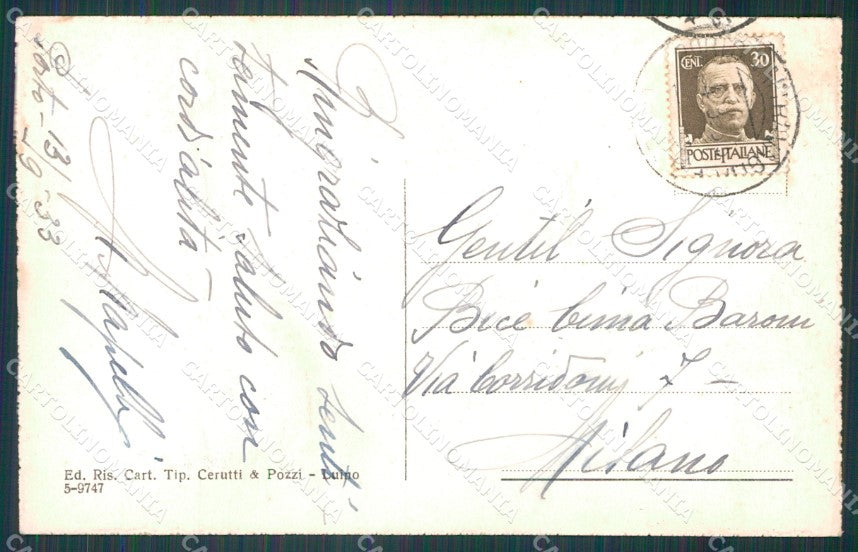 Porto - 13/
- 9 - 33
Ringraziando senti-
tamente saluto con
cordialità -
CENT. 30
POSTE ITALIANE
Gentil Signora
Bice Cima Baroni
Via Corridoni 7 -
Milano
Ed. Ris. Cart. Tip. Cerutti & Pozzi - Luino
5-9747
CARTOLINOMANIA